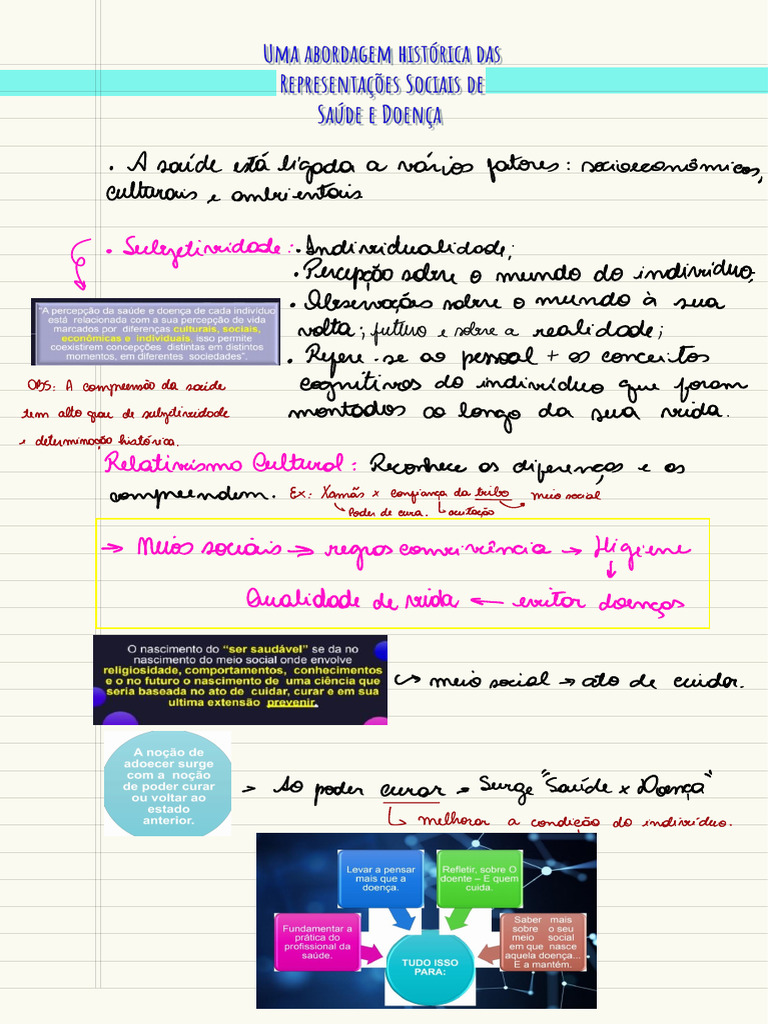 UMA ABORDAGEM HISTÓRICA DAS
REPRESENTAÇÕES SOCIAIS DE
SAÚDE E DOENÇA
• A saúde está ligada a vários fatores: socioeconômicos,
culturais e ambientais
• Subjetividade: • Individualidade;
• Percepção sobre o mundo do indivíduo;
• Observações sobre o mundo à sua
volta; futuro e sobre a realidade;
• Refere-se ao pessoal + os conceitos
cognitivos do indivíduo que foram
montados ao longo da sua vida.
"A percepção da saúde e doença de cada indivíduo
está relacionada com a sua percepção de vida
marcados por diferenças culturais, sociais,
econômicas e individuais, isso permite
coexistirem concepções distintas em distintos
momentos, em diferentes sociedades".
Obs: A compreensão da saúde
tem alto grau de subjetividade
e determinação histórica.
Relativismo Cultural: Reconhece as diferenças e as
compreendem. Ex: Xamãs x confiança da tribo → meio social
↳ Poder de cura. ↳ aceitação
→ Meios sociais → regras convivência → Higiene
↓
Qualidade de vida ← evitar doenças
O nascimento do "ser saudável" se da no
nascimento do meio social onde envolve
religiosidade, comportamentos, conhecimentos
e o no futuro o nascimento de uma ciência que
seria baseada no ato de cuidar, curar e em sua
ultima extensão prevenir.
↪ meio social → ato de cuidar.
A noção de
adoecer surge
com a noção
de poder curar
ou voltar ao
estado
anterior.
→ Ao poder curar = Surge "Saúde x Doença"
↳ melhorar a condição do indivíduo.
Levar a pensar
mais que a
doença.
Refletir, sobre O
doente – E quem
cuida.
Fundamentar a
prática do
profissional da
saúde.
TUDO ISSO
PARA:
Saber mais
sobre o seu
meio social
em que nasce
aquela doença...
E a mantém.